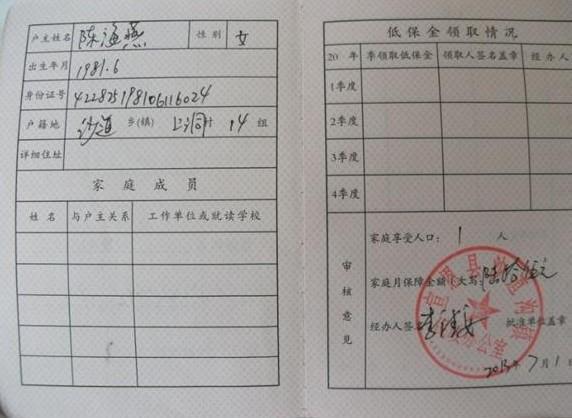 户主姓名 陈渔燕 性别 女
出生年月 1981.6
身份证号 422825198106116024
户籍地 沙道 乡(镇) 村 14 组
详细住址
家庭成员
姓名 与户主关系 工作单位或就读学校
低保金领取情况
20 年 季领取低保金 领取人签名盖章 经办人
1季度
2季度
3季度
4季度
审核意见
家庭享受人口: 1 人
家庭月保障金额(大写
经办人签 批准单位盖章
7月1
宣恩县沙道沟镇